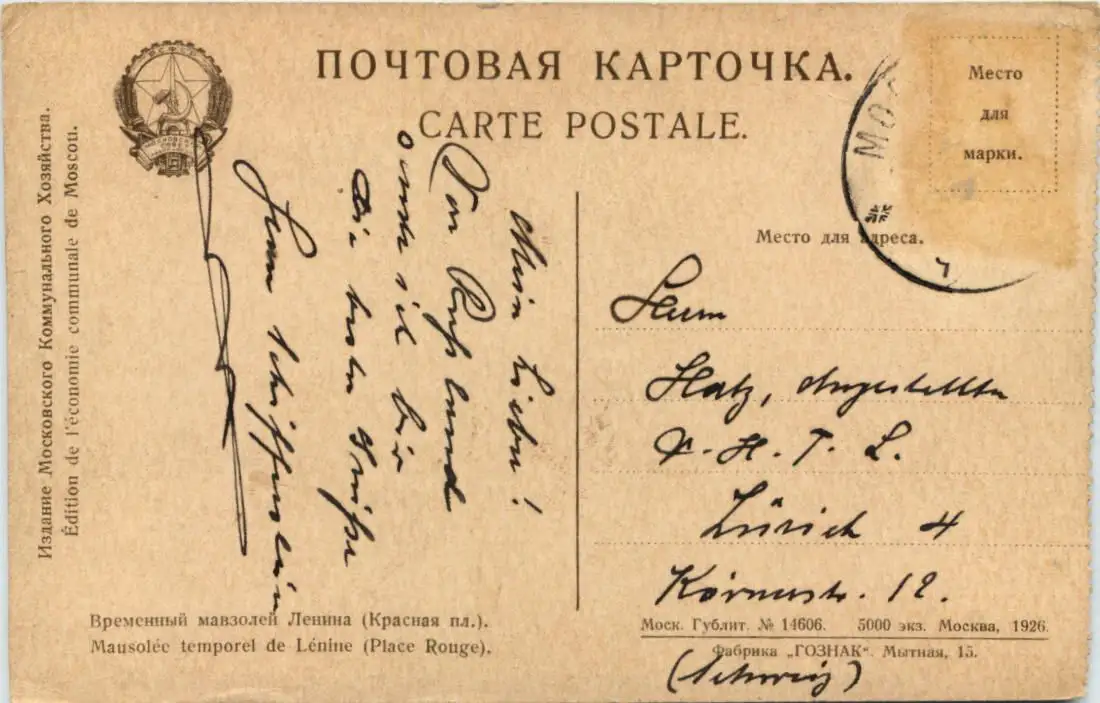 ПОЧТОВАЯ КАРТОЧКА.
CARTE POSTALE.
Издание Московского Коммунального Хозяйства.
Édition de l'économie communale de Moscou.
Место
для
марки.
МО
Место для адреса.
Mein Lieber!
Von Russland
sende ich dir
die besten Grüße
Herrn
Hatz, Angestellter
L.
Zürich 4
Körnerstr. 12.
(Schweiz)
Временный мавзолей Ленина (Красная пл.).
Mausolée temporel de Lénine (Place Rouge).
Моск. Гублит. № 14606. 5000 экз. Москва, 1926.
Фабрика „ГОЗНАК". Мытная, 15.